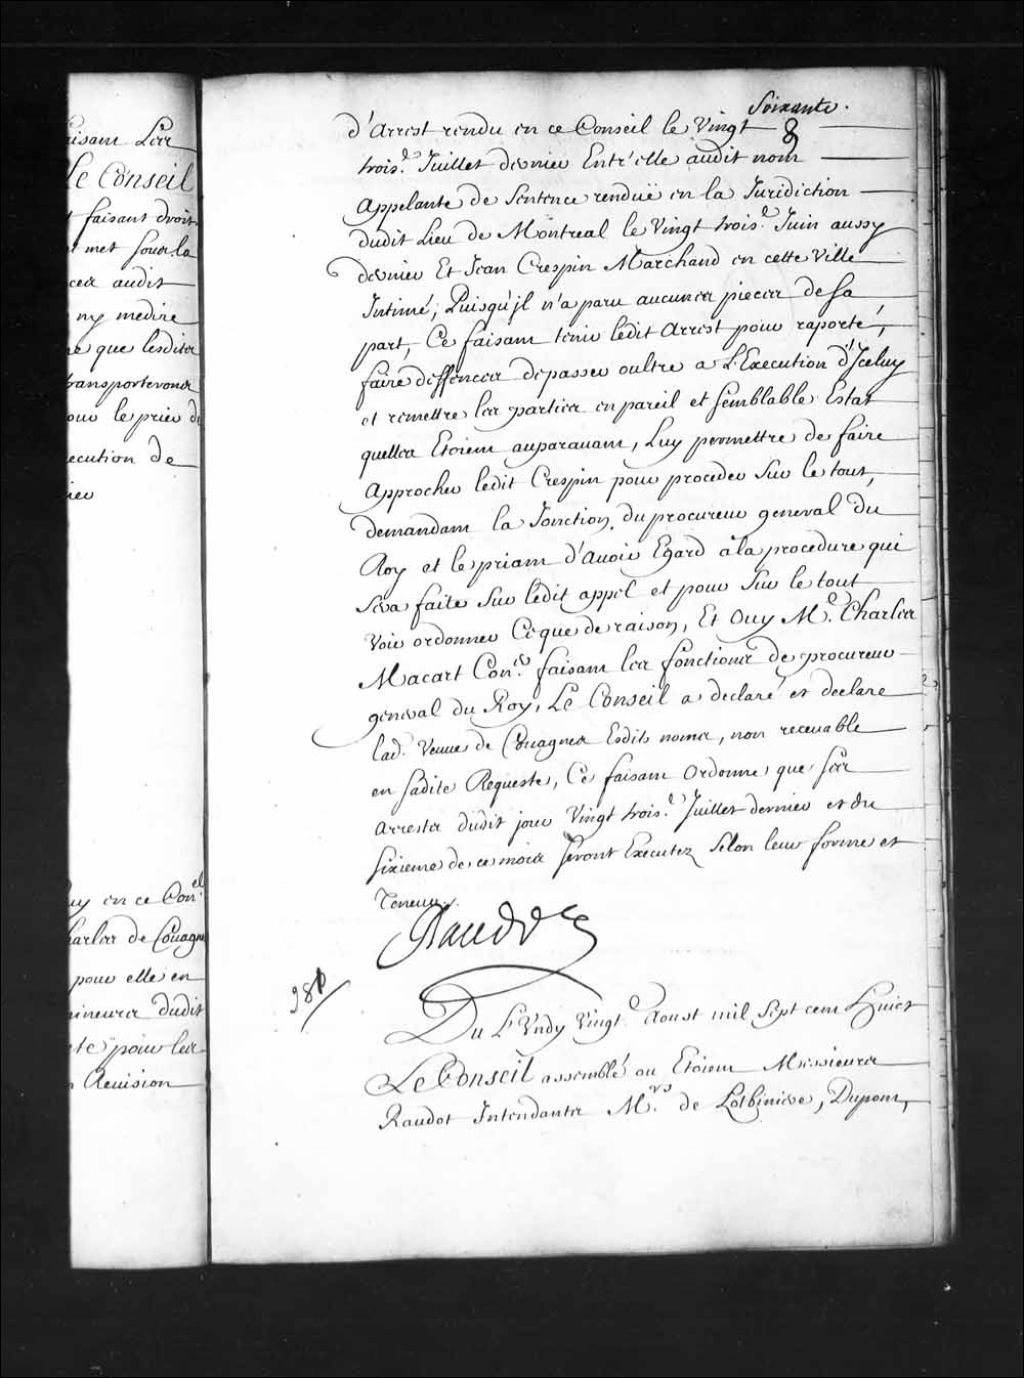 aisant Les
Le Conseil
t faisant droit
et met sous la
ces audit
ny medire
ne que lesdites
transporteront
our le prier de
ecution de
ieu
uy en ce Con.el
harles de Couagne
pour elle en
mineures dudit
te pour les
Revision
Soixante.
8
d'Arrest rendu en ce Conseil le Vingt
trois.e Juillet dernier Entr'elle audit nom
Appelante de Sentence renduë en la Juridiction
dudit Lieu de Montreal le Vingt trois.e Juin aussy
dernier Et Jean Crespin Marchand en cette Ville
Intimé, Puisqu'jl n'a paru aucunes pieces de sa
part, Ce faisant tenir ledit Arrest pour raporté,
faire deffences de passer oultre a L'Execution d'Jceluy
et remettre les parties en pareil et semblable Estat
quelles Etoient auparavant, Luy permettre de faire
Approcher ledit Crespin pour proceder sur le tout,
demandant la Jonction du procureur general du
Roy et le priant d'avoir Egard à la procedure qui
sera faite sur ledit appel et pour sur le tout
Voir ordonner Ceque de raison, Et Ouy M.e Charles
Macart Con.er faisant les fonctions de procureur
general du Roy, Le Conseil a declaré et declare
lad. Veuve de Couagnes Esdits noms, non recevable
en sadite Requeste, Ce faisant Ordonne que les
Arrests dudit jour Vingt trois.e Juillet dernier et du
sixieme de ce mois seront Executez selon leur forme et
Teneur.
Raudot
28
Du Lundy Vingt.e Aoust mil sept cent Huict
Le Conseil assemblé ou Etoient Messieurs
Raudot Intendants M.rs de Lotbiniere, Dupont,